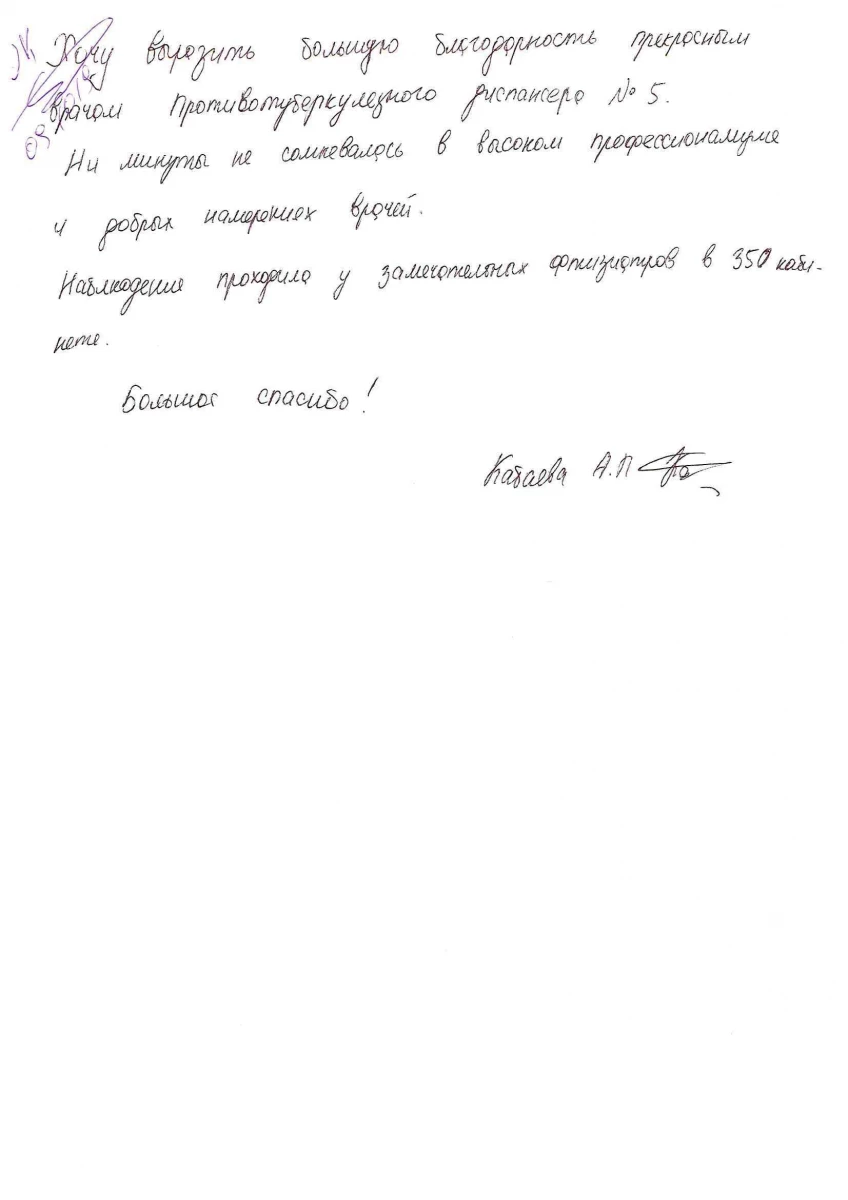 Хочу выразить большую благодарность прекрасным
врачам Противотуберкулезного диспансера № 5.
Ни минуты не сомневалась в высоком профессионализме
и добрых намерениях врачей.
Наблюдение проходила у замечательных фтизиатров в 350 каби-
нете.
Большое спасибо!
А.П